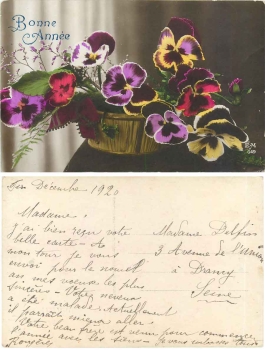 Bonne
Année
Fin Décembre 1920
Madame,
J'ai bien reçu votre
belle carte - A
mon tour je vous
envoi pour le nouvel
an mes voeux les plus
sincères - Votre neveu
a été malade. Actuellement
il paraît mieux aller.
Votre beau frère est venu pour commencer
l'année avec les siens - Je vous embrasse tous
Madame Delfin
3 Avenue de
à Drancy
Seine